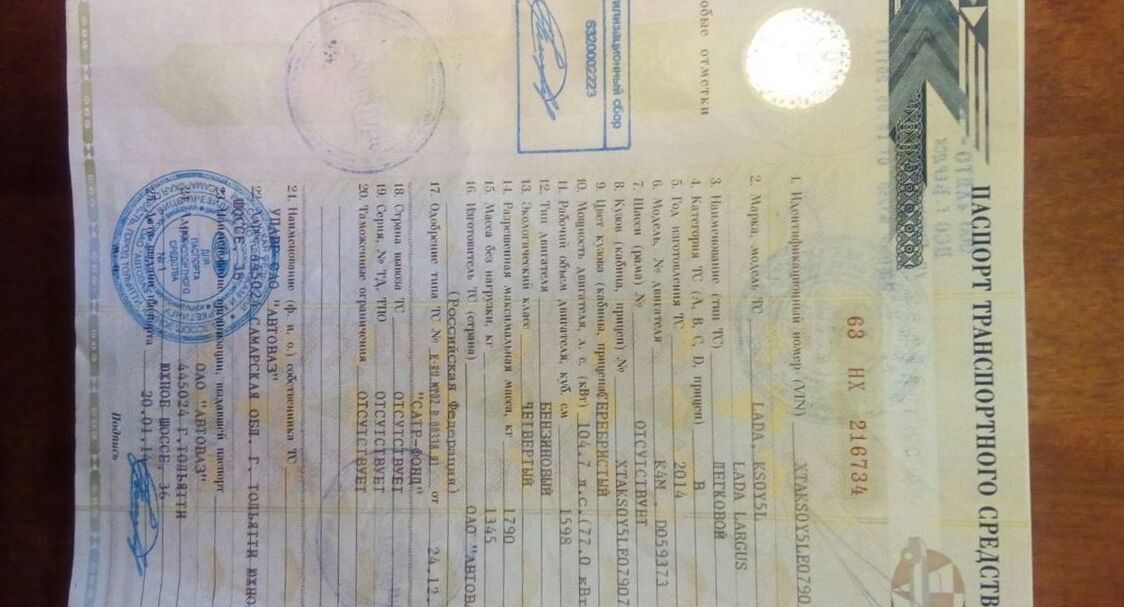 ПАСПОРТ ТРАНСПОРТНОГО СРЕДСТВ
63 НХ 216734
1. Идентификационный номер (VIN) XTAKS0Y5LE0790
2. Марка, модель ТС LADA, KS0Y5L
LADA LARGUS
3. Наименование (тип ТС) ЛЕГКОВОЙ
4. Категория ТС (А, В, С, D, прицеп) B
5. Год изготовления ТС 2014
6. Модель, № двигателя K4M , D059373
7. Шасси (рама) № ОТСУТСТВУЕТ
8. Кузов (кабина, прицеп) № XTAKS0Y5LE07907
9. Цвет кузова (кабины, прицепа) СЕРЕБРИСТЫЙ
10. Мощность двигателя, л. с. (кВт) 104,7 л.с.(77,0 кВт
11. Рабочий объем двигателя, куб. см 1598
12. Тип двигателя БЕНЗИНОВЫЙ
13. Экологический класс ЧЕТВЕРТЫЙ
14. Разрешенная максимальная масса, кг 1790
15. Масса без нагрузки, кг 1345
16. Изготовитель ТС (страна) ОАО "АВТОВА
(Российская Федерация)
17. Одобрение типа ТС № от 24.12.
"САТР-ФОНД"
18. Страна вывоза ТС ОТСУТСТВУЕТ
19. Серия, № ТД, ТПО ОТСУТСТВУЕТ
20. Таможенные ограничения ОТСУТСТВУЕТ
21. Наименование (ф. и. о.) собственника ТС
ОАО "АВТОВАЗ"
САМАРСКАЯ ОБЛ. Г. ТОЛЬЯТТИ ЮЖНО
ШОССЕ, 36
организации, выдавшей паспорт
ОАО "АВТОВАЗ"
445024 Г.ТОЛЬЯТТИ
ЮЖНОЕ ШОССЕ, 36
паспорта 20.01.14
Подпись
обые отметки
илизационный сбор
6320002223
ДЛЯ
ПАСПОРТА
ТРАНСПОРТНОГО
СРЕДСТВА
№ 1